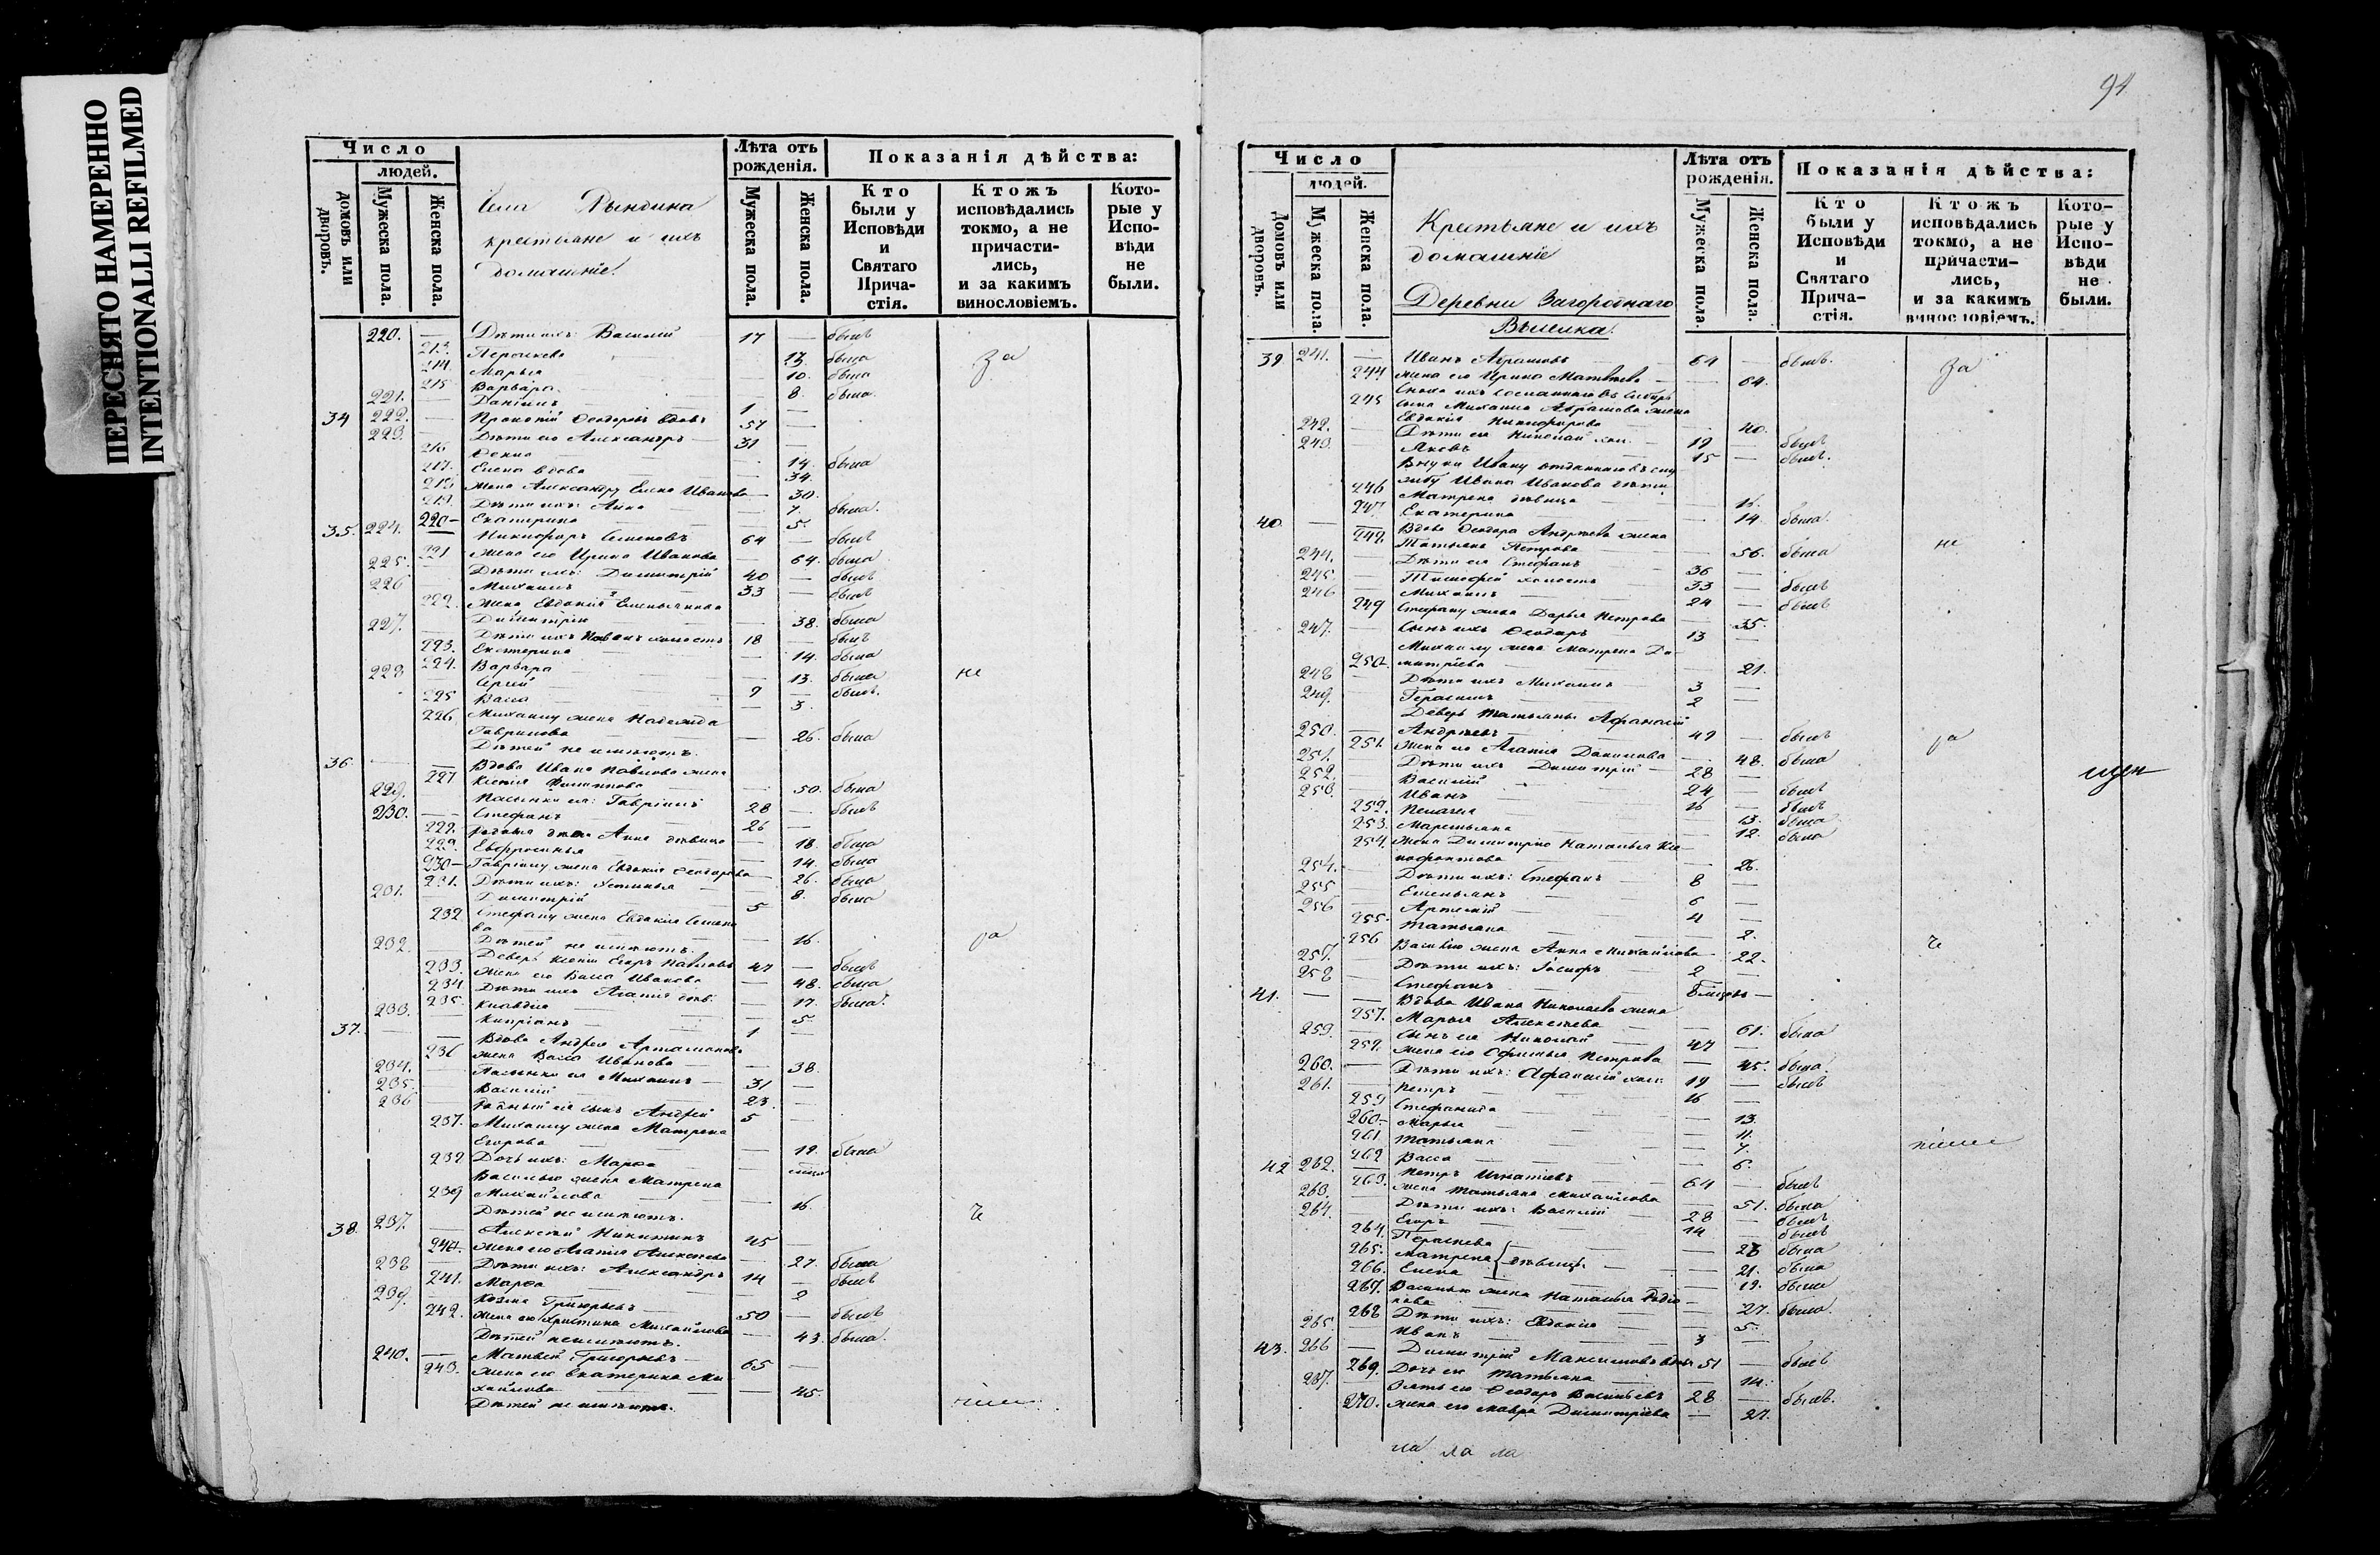 ПЕРЕСНЯТО НАМЕРЕННО
INTENTIONALLI REFILMED
Число
людей.
домовъ или дворовъ.
Мужеска пола.
Женска пола.
Села Рындина
крестьяне и ихъ
домашніе.
Лѣта отъ рожденія.
Мужеска пола.
Женска пола.
Показанія дѣйства:
Кто были у Исповѣди и Святаго Прича-стія.
Ктожъ исповѣдались токмо, а не причасти-лись, и за какимъ винословіемъ.
Кото-рые у Испо-вѣди не были.
220. — Дѣти ихъ: Василій 17 — былъ
213. — 13. была
214. Марья — 10. была
215 Варвара — 8. была.
221. — Даніилъ 1 —
34 222. — Прокопій Ѳеодоровъ вдовъ 57 —
223. — Дѣти его Александръ 31 —
216 — 14. была
217. Елена вдова — 34.
218 жена Александру Елена Иванова — 30.
219. Дѣти ихъ: Анна — 7. была.
220 — Екатерина — 5.
35. 224. — Никифоръ Семеновъ 64 — былъ
221 жена его Ирина Иванова — 64. была
225. — Дѣти ихъ: Димитрій 40 — былъ
226 — Михаилъ 33 — былъ
222. жена Евдокія Емельянова
Димитрію — 38. была
227. — Дѣти ихъ холостъ 18 — былъ
223. Екатерина — 14. была
224. Варвара — 13. была
228 — Сергій 9 — былъ.
225 Васса — 3.
226. Михаилу жена Надежда
Гаврилова — 26. была
Дѣтей не имѣютъ.
36. — Вдова Ивана Павлова жена
227 Ксенія Филиппова — 50. была
229. — Пасынки ея: Гавріилъ 28 — былъ
230. — Стефанъ 26 —
228. дѣти Анна дѣвица — 18. была
229. Евфросинья — 14. была
230 — Гавріилу жена Евдокія Ѳеодорова — 26. была
231. Дѣти ихъ: Устинья — 8. была
231. — Димитрій 5
232 Стефану жена Евдокія Семено
ва — 16.
Дѣтей не имѣютъ.
232. — Деверь Ксеніи Егоръ Павловъ 47 — былъ
233. жена его Васса Иванова — 48. была
234 Дѣти ихъ Агапія дѣв. — 17. была.
235. Клавдія — 5.
233. — Кипріанъ 1 —
37. — Вдова Андрея Артамонова
236 жена Васса Иванова — 38.
234. — Пасынки ея Михаилъ 31 —
235. — Василій 23. —
236 — сынъ Андрей 5 —
237. Михаилу жена Матрена
Егорова — 19. была
238 Дочь ихъ: Марѳа —
Василью жена Матрена
239 Михайлова — 16.
Дѣтей не имѣютъ.
38. 237. — Алексѣй Никитинъ 45 —
240. жена его Агапія Алексѣева — 27. была
238 — Дѣти ихъ: Александръ 14 — былъ
241. Марѳа — 2
239. — Козма Григорьевъ 50 — былъ
242. жена его Христина Михайлова — 43. была.
Дѣтей не имѣютъ.
240. — Матвѣй Григорьевъ 65 —
243. жена его Екатерина Ми
хайлова — 45.
Дѣтей не имѣютъ.
за
не
ра
че
ніем
94
Число
людей.
домовъ или дворовъ.
Мужеска пола.
Женска пола.
Крестьяне и ихъ
домашніе
Деревни Загороднаго
Выселка.
Лѣта отъ рожденія.
Мужеска пола.
Женска пола.
Показанія дѣйства:
Кто были у Исповѣди и Святаго Прича-стія.
Ктожъ исповѣдались токмо, а не причасти-лись, и за какимъ винословіемъ.
Кото-рые у Испо-вѣди не были.
39 241. — Иванъ Абрамовъ 64 — былъ.
244 жена его Ирина Матвѣева — 64.
245 Сноха ихъ сосланнаго въ Сибирь
сына Михаила Абрамова жена
Евдокія Никифорова — 40.
242. — Дѣти ея Николай хол. 19 — былъ
243. — Яковъ 15 — былъ.
Внуки Ивану отданнаго въ слу
жбу Ивана Иванова дѣти
246 Матрена дѣвица — 16.
247. Екатерина — 14. была.
40. — Вдова Ѳеодора Андреева жена
248. Татьяна Петрова — 56. была
244. — Дѣти ея Стефанъ 36 —
245. — Тимофей холостъ 33 — былъ
246 — Михаилъ 24 — былъ
249 Стефану жена Дарья Петрова — 35.
247. — Сынъ ихъ Ѳеодоръ 13 —
Михаилу жена Матрена Ди
250. митріева — 21.
248 — Дѣти ихъ Михаилъ 3 —
249. — Герасимъ 2 —
Деверь Татьяны Афанасій
250. — Андреевъ 49 — былъ
251. жена его Агапія Данилова — 48. была
251. — Дѣти ихъ Димитрій 28 —
252. — Василій 24 — былъ
253. — Иванъ 16 — былъ
252. Пелагея — 13. была
253. Маремьяна — 12. была
254. жена Димитрію Наталья Кс
нофонтова — 26.
254. — Дѣти ихъ: Стефанъ 8 —
255 — Емельянъ 6 —
256 — Артемій 4 —
255. Татьяна — 2.
256 Василію жена Анна Михайлова — 22.
257. — Дѣти ихъ: 2 —
258 — Стефанъ 8 мѣсяц. —
41. — Вдова Ивана Николаева жена
257. Марья Алексѣева — 61. была
259. — Сынъ ея Николай 47
258. жена его Офимья Петрова — 45. была.
260. — Дѣти ихъ: Афанасій хол. 19 — былъ
261. — Петръ 16 —
259 Стефанида — 13.
260 — Марья — 11.
261 Татьяна — 7.
262 Васса — 6.
42 262. — Петръ Игнатьевъ 64 — былъ
263. жена Татьяна Михайлова — 51. была
263. — Дѣти ихъ: Василій 28 — былъ
264. — Егоръ 14 — былъ
264. — 23 была
265. Матрена дѣвицы — 21. была
266. Елена — 19. была
267. Василью жена Наталья Родіо
нова — 27. была.
268 Дѣти ихъ: Евдокія — 5.
265 — Иванъ 3 —
43. 266 — Димитрій Максимовъ вдовъ 51 — былъ
269. Дочь его Татьяна — 14.
267. — Зять его Ѳеодоръ Васильевъ 28 — былъ.
270. жена его Мавра Димитріева — 27.
за
не
ра
че
ніем
ла ла ла